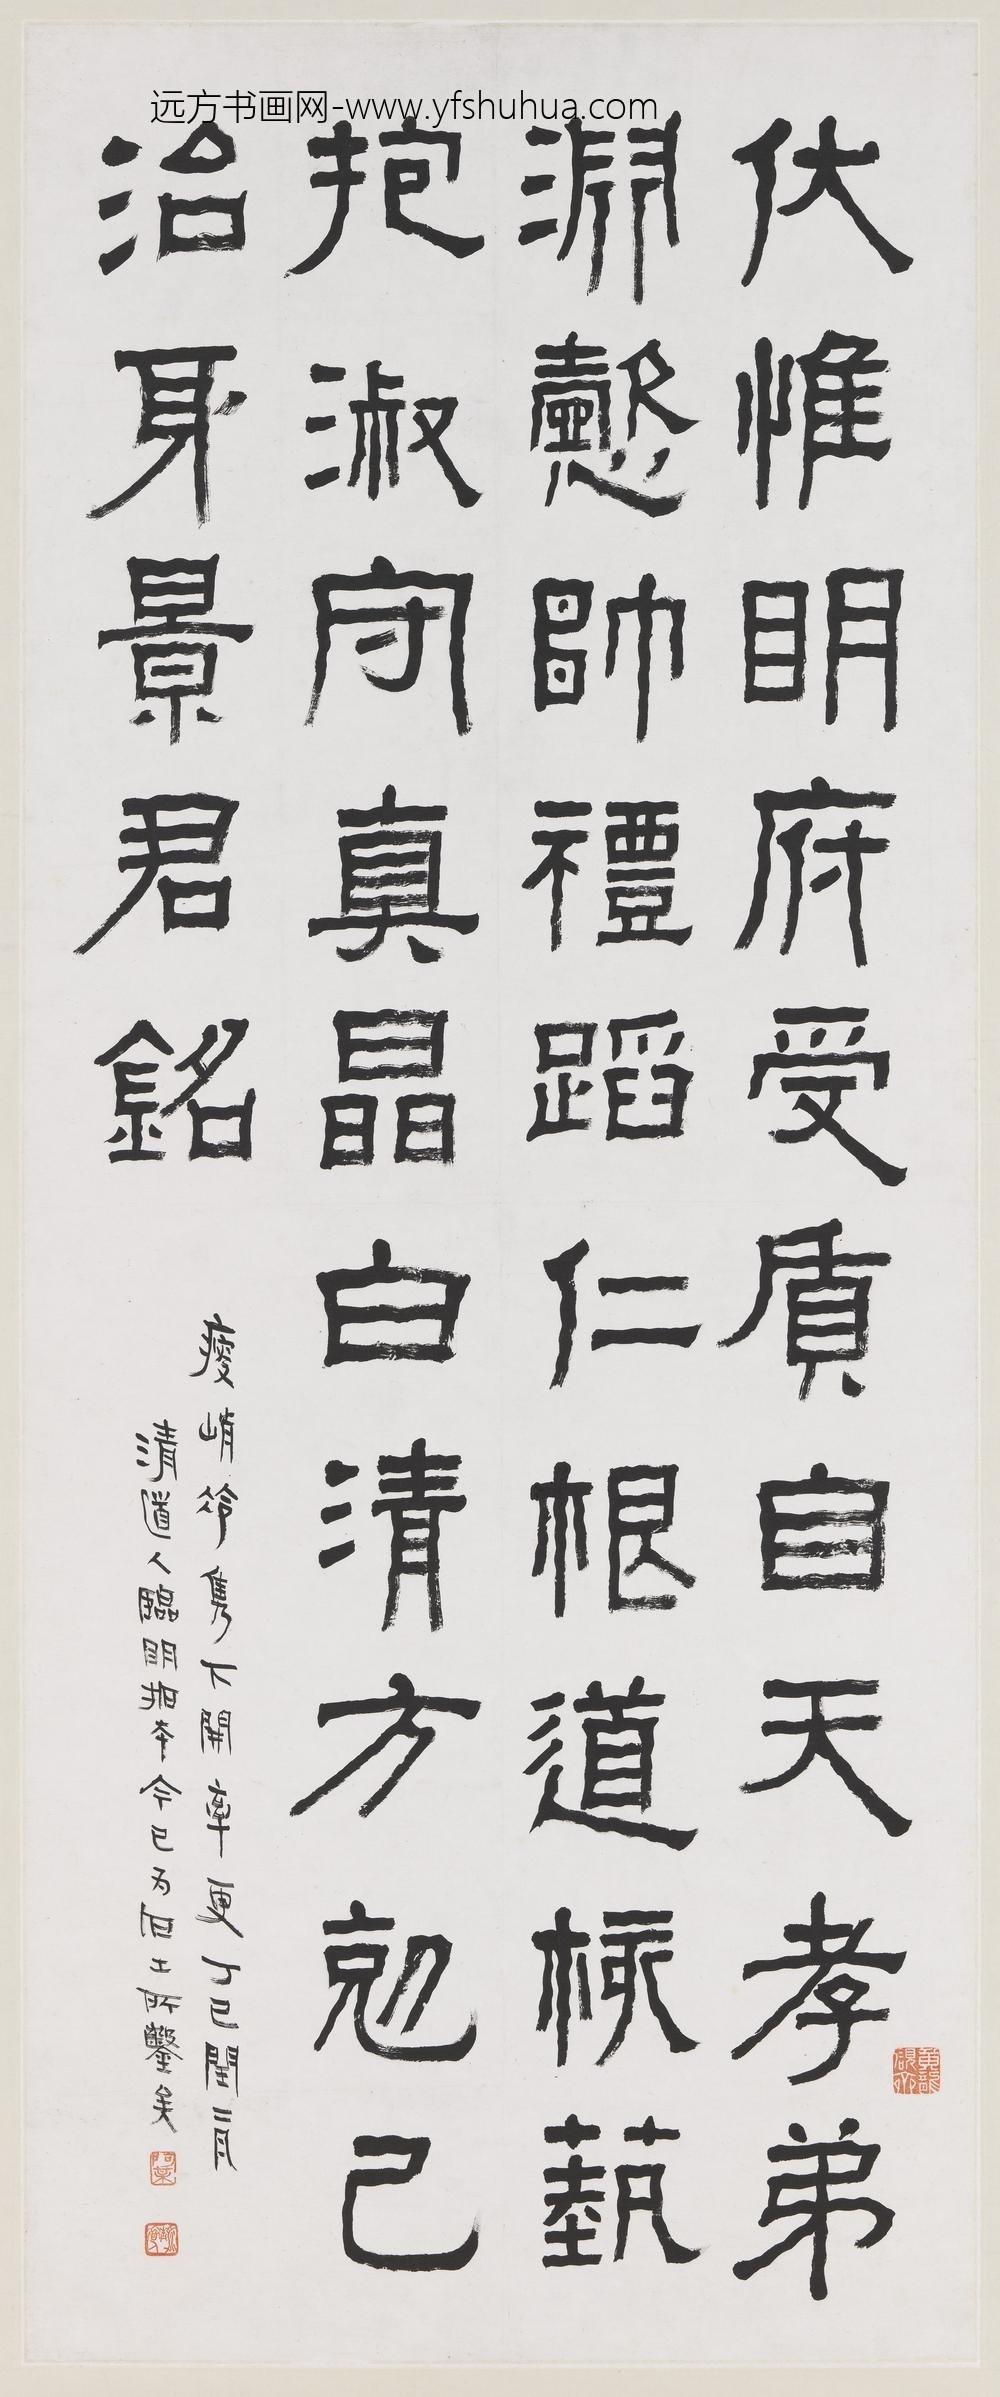 远方书画网-www.yfshuhua.com
伏惟明府受质自天孝弟
渊懿帥禮蹈仁根道核藝
抱淑守真晶白清方剋己
治身景君銘
瘦峭 隽下開率更丁巳閏二月
清道人臨明拓本今已为俗士所鑿矣